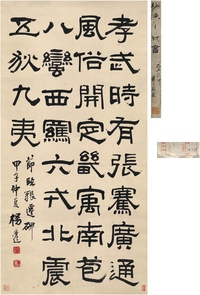 孝武時有張騫廣通
風俗開定畿寓南苞
八蠻西羈六戎北震
五狄九夷
節臨張遷碑
甲子仲夏